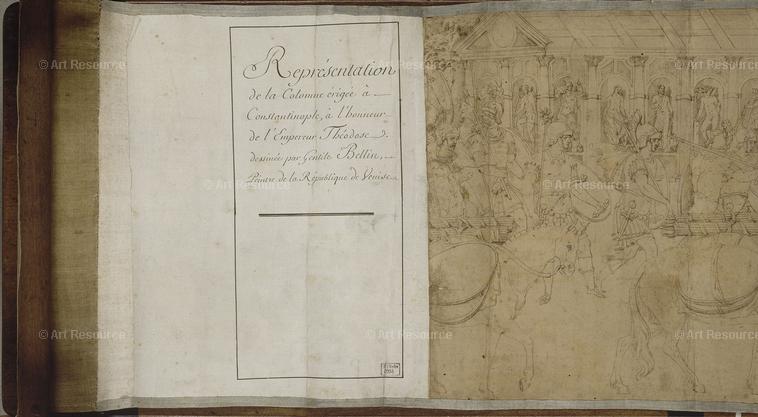 Représentation
de la Colomne erigée à
Constantinople, à l'honneur
de l'Empereur Théodose
dessinée par Gentile Bellin,
Peintre de la République de Venise
© Art Resource
© Art Resource
© Art Resource
© Art Resource
© Art Resource
© Art Resource
© Art Resource
© Art Resource
© Art Resource